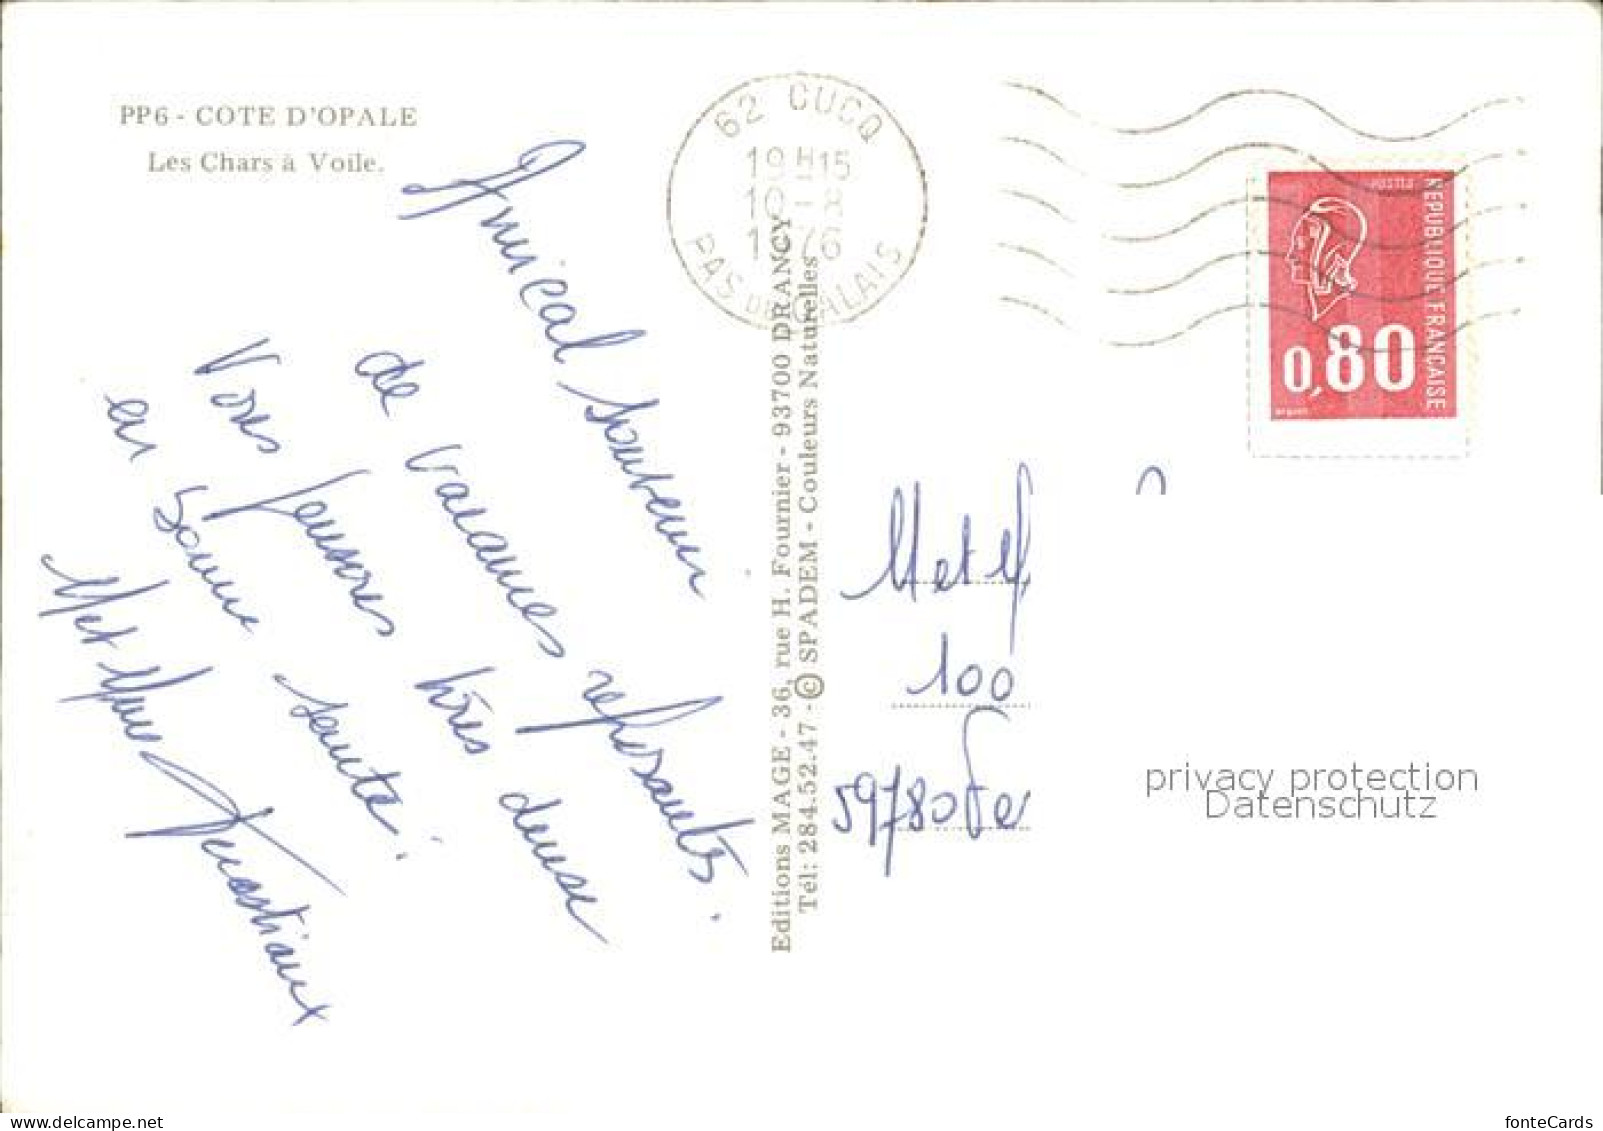 PP6 - COTE D'OPALE
Les Chars à Voile.
62 CUCQ
19H15
1976
PAS DE CALAIS
REPUBLIQUE FRANÇAISE
POSTES
0,80
Amical Souvenir
de vacances reposantes.
Vous pensons très
en bonne santé.
M et Mme
Editions MAGE - 36, rue H. Fournier - 93700 DRANCY
Tél: 284.52.47 - © SPADEM - Couleurs Naturelles
M et M
100
59780
privacy protection
Datenschutz
delcampe.net
fonteCards